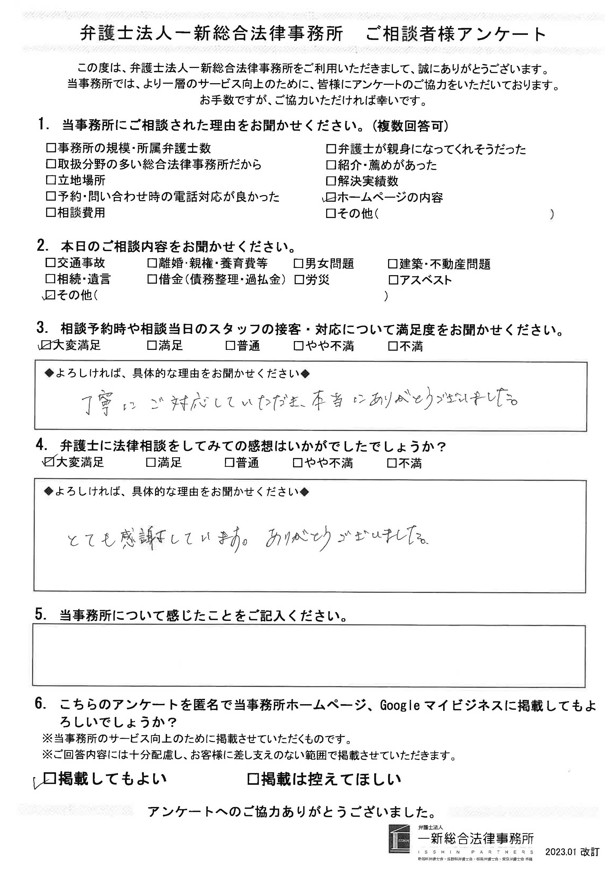 弁護士法人一新総合法律事務所　ご相談者様アンケート
この度は、弁護士法人一新総合法律事務所をご利用いただきまして、誠にありがとうございます。
当事務所では、より一層のサービス向上のために、皆様にアンケートのご協力をいただいております。
お手数ですが、ご協力いただければ幸いです。
1. 当事務所にご相談された理由をお聞かせください。(複数回答可)
□事務所の規模・所属弁護士数 □弁護士が親身になってくれそうだった
□取扱分野の多い総合法律事務所だから □紹介・薦めがあった
□立地場所 □解決実績数
□予約・問い合わせ時の電話対応が良かった ☑ホームページの内容
□相談費用 □その他( )
2. 本日のご相談内容をお聞かせください。
□交通事故 □離婚・親権・養育費等 □男女問題 □建築・不動産問題
□相続・遺言 □借金(債務整理・過払金) □労災 □アスベスト
☑その他( )
3. 相談予約時や相談当日のスタッフの接客・対応について満足度をお聞かせください。
☑大変満足 □満足 □普通 □やや不満 □不満
◆よろしければ、具体的な理由をお聞かせください◆
丁寧にご対応していただき、本当にありがとうございました。
4. 弁護士に法律相談をしてみての感想はいかがでしたでしょうか?
☑大変満足 □満足 □普通 □やや不満 □不満
◆よろしければ、具体的な理由をお聞かせください◆
とても感謝しています。ありがとうございました。
5. 当事務所について感じたことをご記入ください。
6. こちらのアンケートを匿名で当事務所ホームページ、Google マイビジネスに掲載してもよ
ろしいでしょうか?
※当事務所のサービス向上のために掲載させていただくものです。
※ご回答内容には十分配慮し、お客様に差し支えのない範囲で掲載させていただきます。
☑掲載してもよい □掲載は控えてほしい
アンケートへのご協力ありがとうございました。
弁護士法人
一新総合法律事務所
ISSHIN PARTNERS
2023.01 改訂